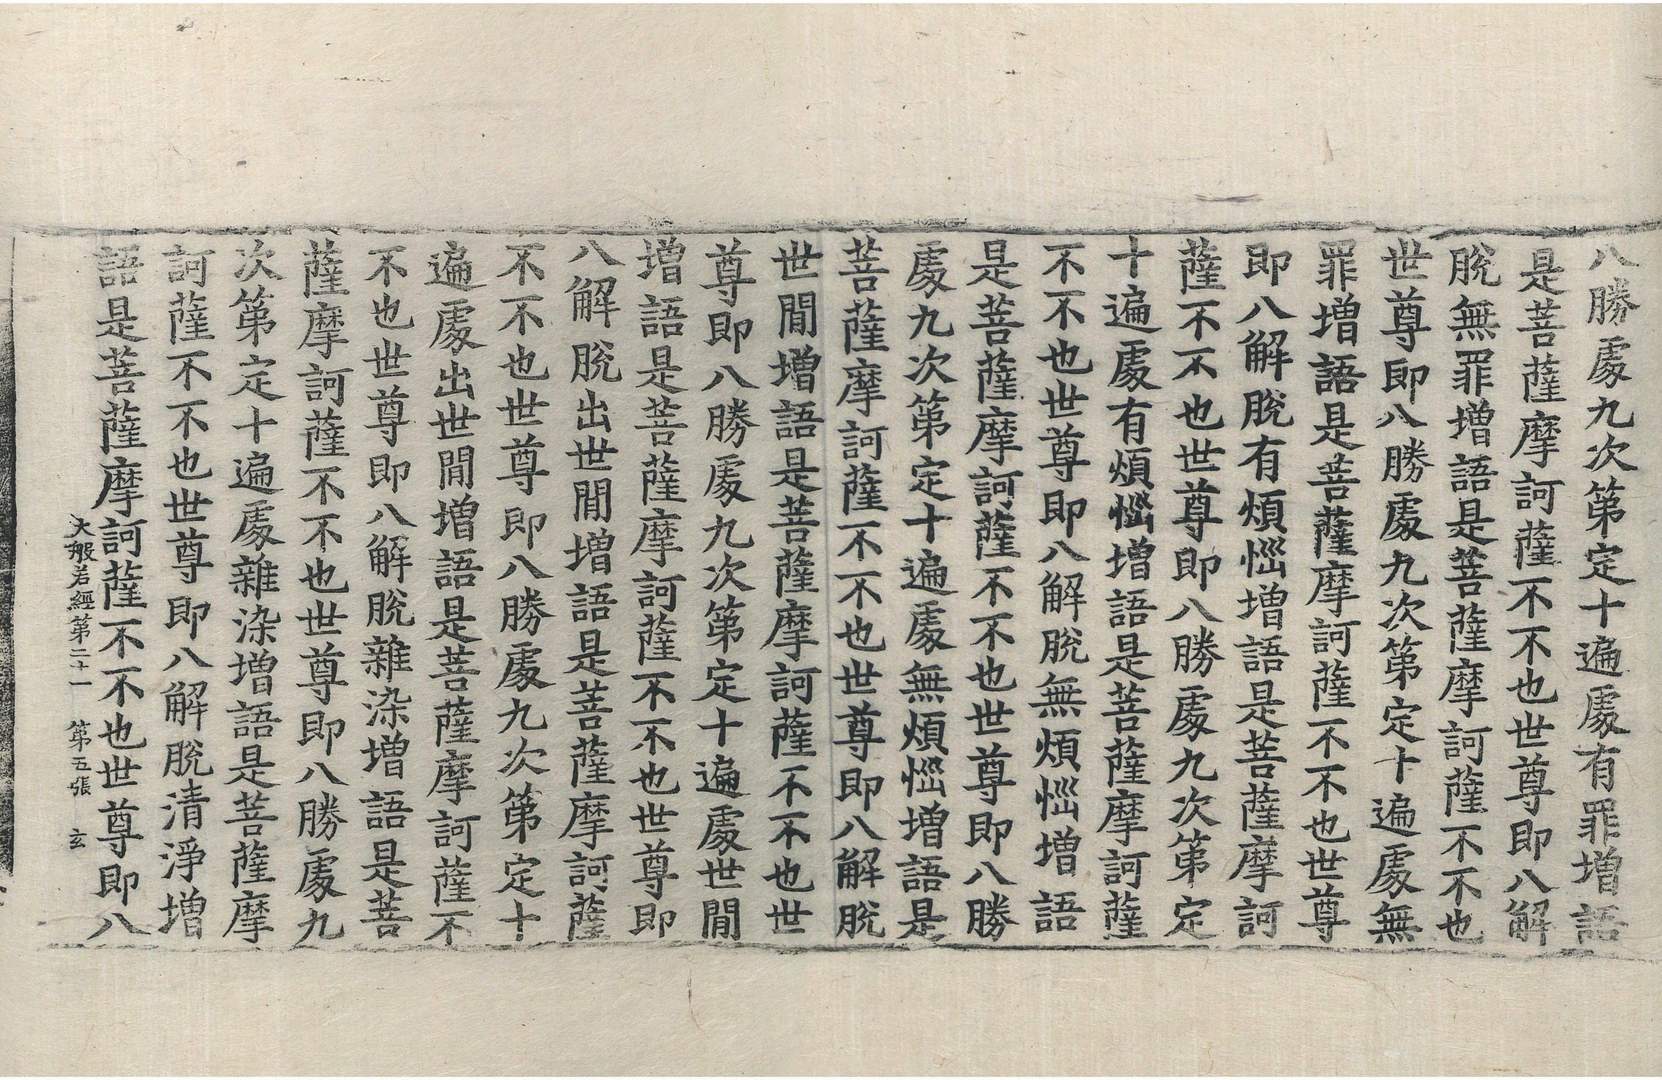 八勝處九次第定十遍處有罪增語
是菩薩摩訶薩不不也世尊即八解
脫無罪增語是菩薩摩訶薩不不也
世尊即八勝處九次第定十遍處無
罪增語是菩薩摩訶薩不不也世尊
即八解脫有煩惱增語是菩薩摩訶
薩不不也世尊即八勝處九次第定
十遍處有煩惱增語是菩薩摩訶薩
不不也世尊即八解脫無煩惱增語
是菩薩摩訶薩不不也世尊即八勝
處九次第定十遍處無煩惱增語是
菩薩摩訶薩不不也世尊即八解脫
世閒增語是菩薩摩訶薩不不也世
尊即八勝處九次第定十遍處世閒
增語是菩薩摩訶薩不不也世尊即
八解脫出世閒增語是菩薩摩訶薩
不不也世尊即八勝處九次第定十
遍處出世閒增語是菩薩摩訶薩不
不也世尊即八解脫雜染增語是菩
薩摩訶薩不不也世尊即八勝處九
次第定十遍處雜染增語是菩薩摩
訶薩不不也世尊即八解脫清淨增
語是菩薩摩訶薩不不也世尊即八
大般若經第二十一 第五張 玄